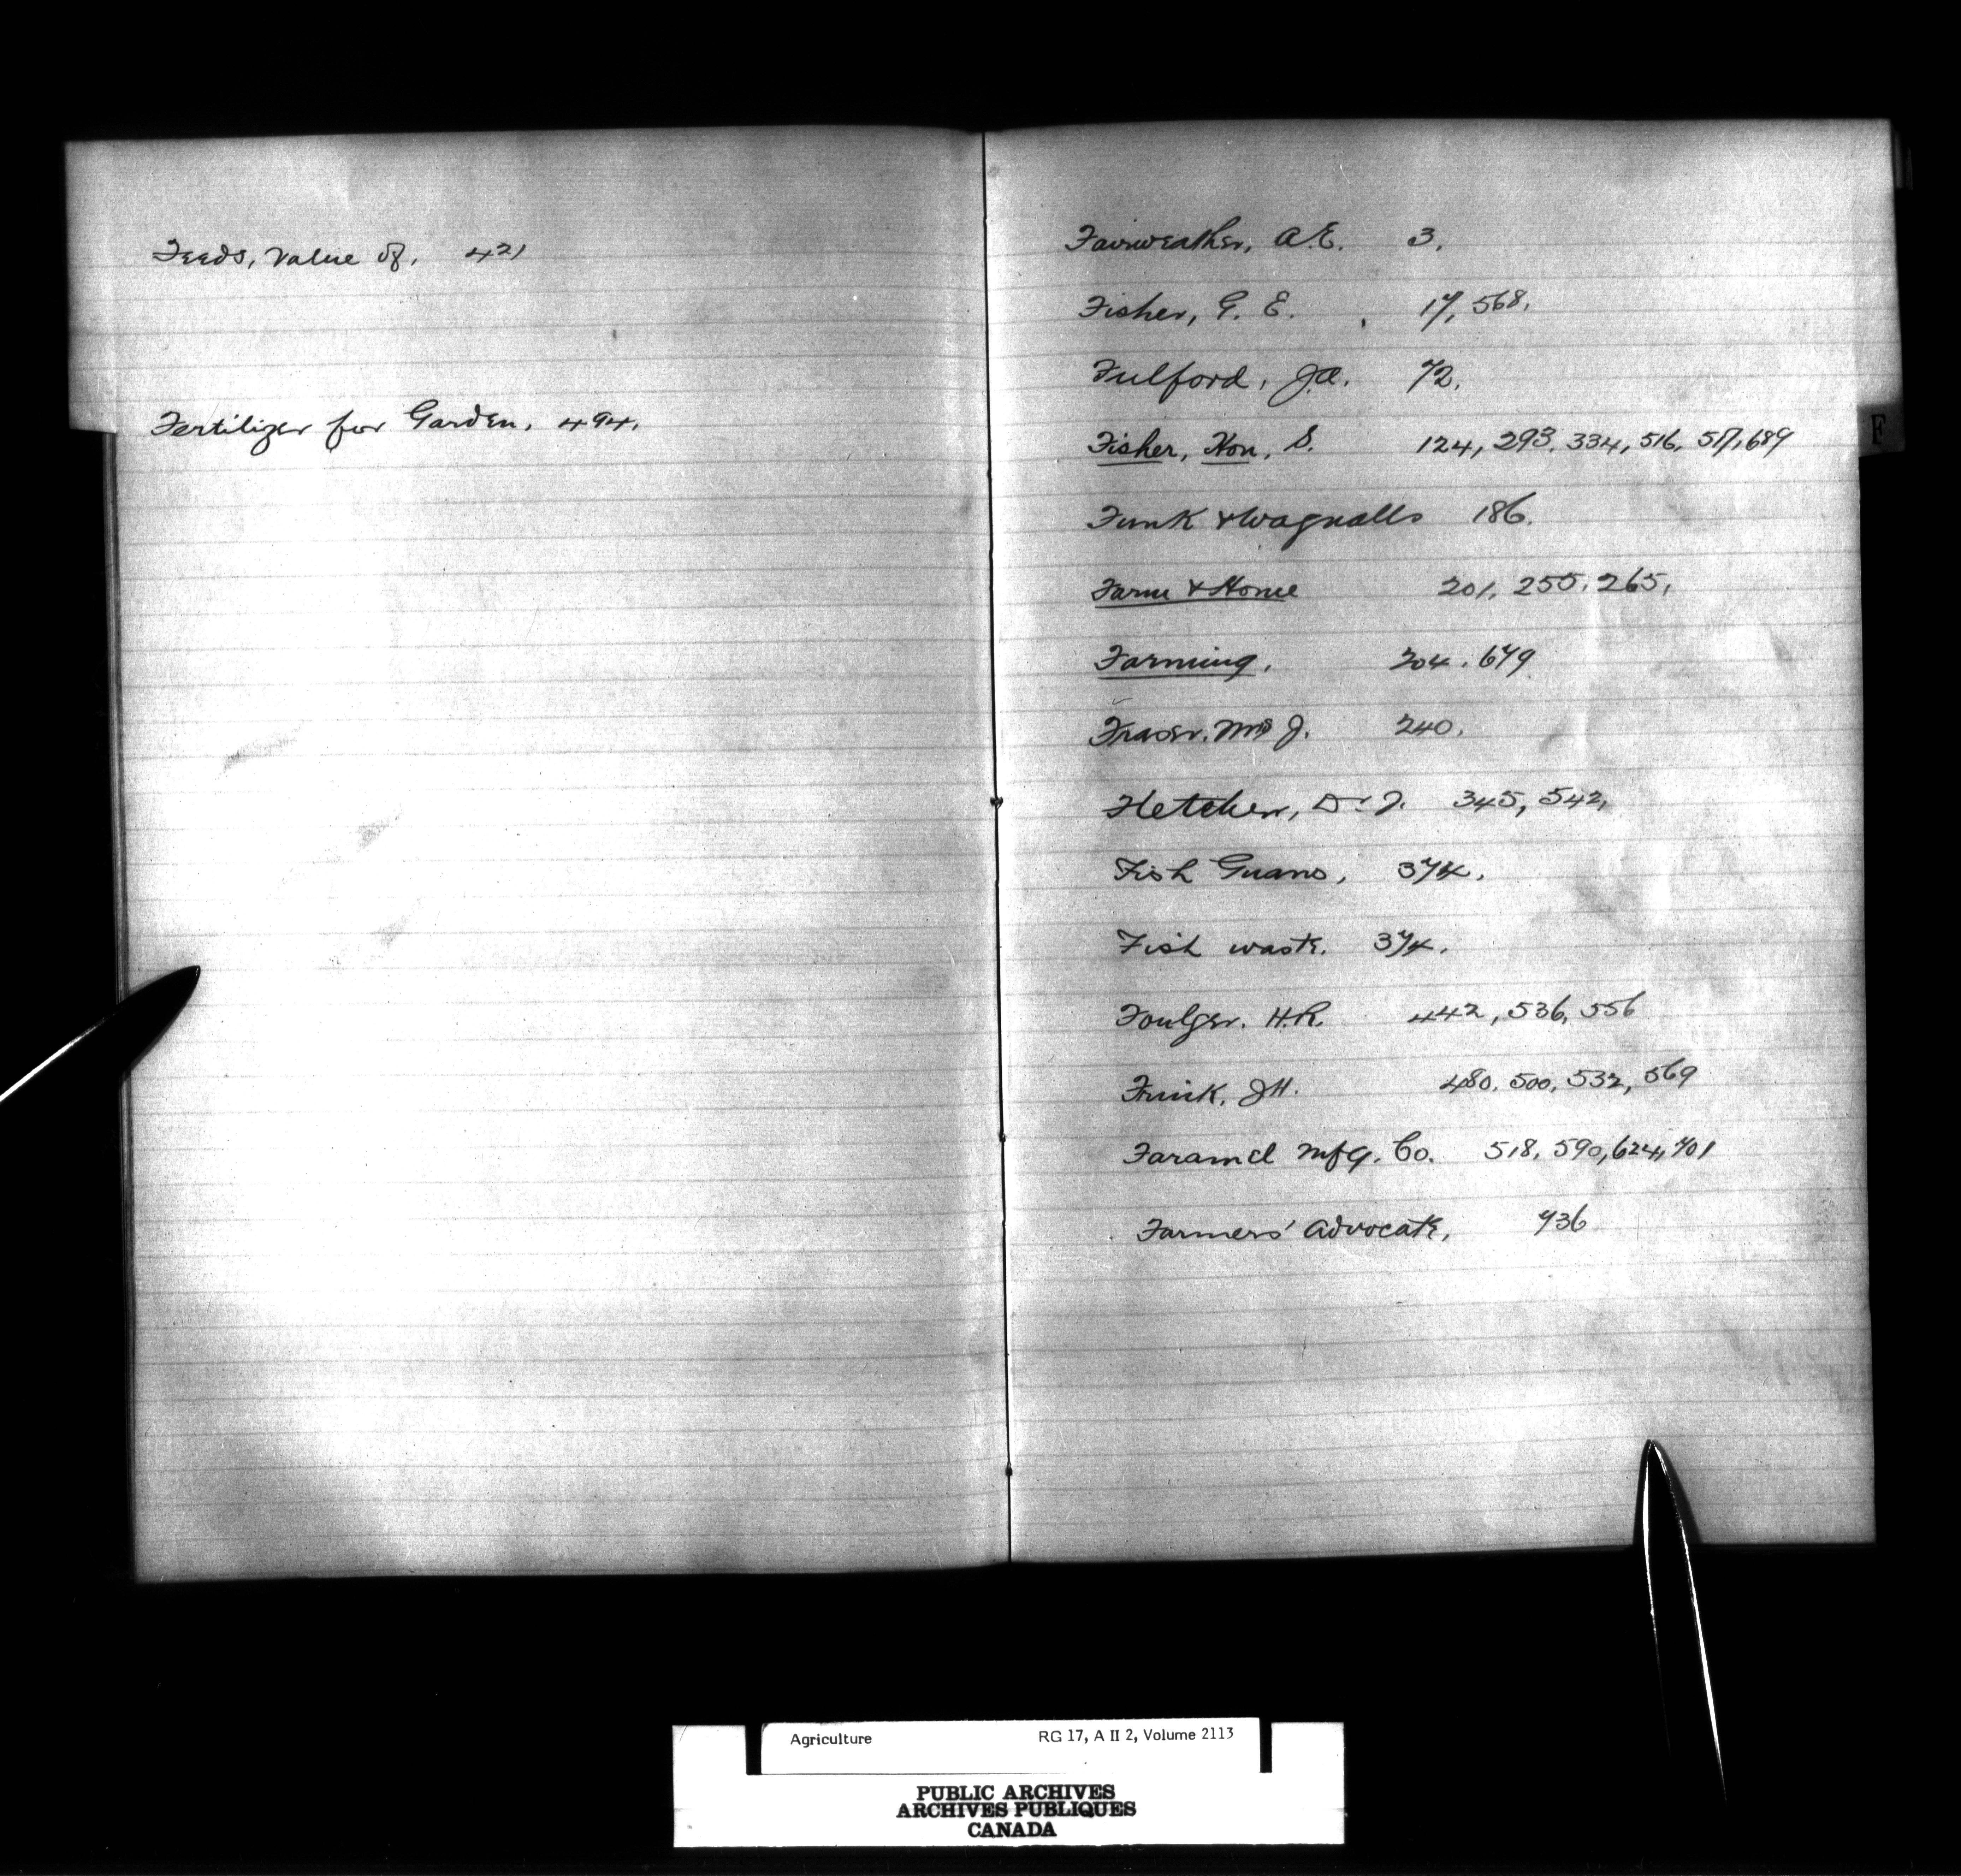 Feeds, Value of, 421
Fertilizer for Garden, 494.
F
Fairweather, A.E. 3.
Fisher, G. E. 17, 568.
Fulford, J.A. 72.
Fisher, Hon, S. 124, 293. 334, 516, 517, 689
Funk & Wagnalls 186.
Farm & Home 201, 255, 265,
Farming, 204. 679
Fraser. Mrs J. 240.
Fletcher, Dr J. 345, 542,
Fish Guano, 374.
Fish waste. 374.
Foulger. H.R. 442, 536, 556
Frink, J.H. 480, 500, 532, 569
Faramel Mfg. Co. 518, 590, 624, 701
Farmers' Advocate, 736
Agriculture RG 17, A II 2, Volume 2113
PUBLIC ARCHIVES
ARCHIVES PUBLIQUES
CANADA